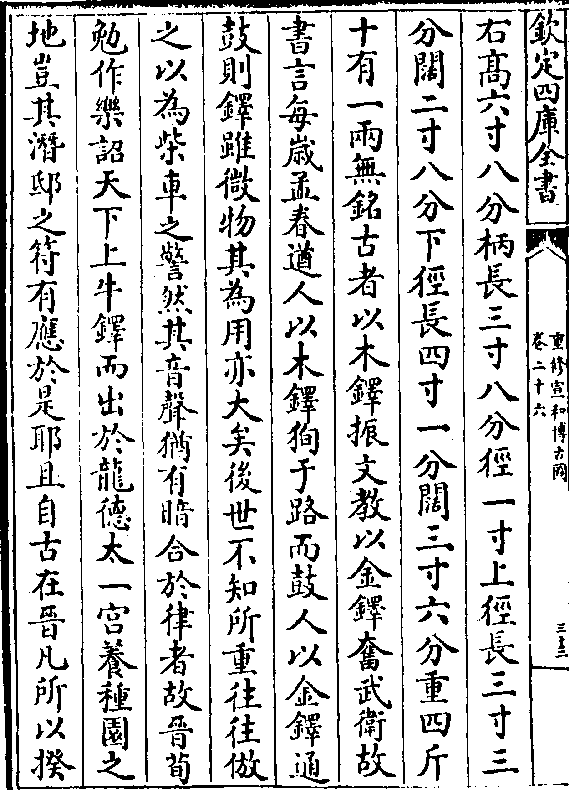 欽定四庫全書
重修宣和博古圖
卷二十六
三三
右髙六寸八分柄長三寸八分徑一寸上徑長三寸三
分闊二寸八分下徑長四寸一分闊三寸六分重四斤
十有一兩無銘古者以木鐸振文教以金鐸奮武衛故
書言每嵗孟春遒人以木鐸狥于路而鼓人以金鐸通
鼓則鐸雖微物其為用亦大矣後世不知所重往往倣
之以為柴車之警然其音聲猶有暗合於律者故晉荀
勉作樂詔天下上牛鐸而出於龍德太一宮養種園之
地豈其潛邸之符有應於是耶且自古在晉凡所以揆